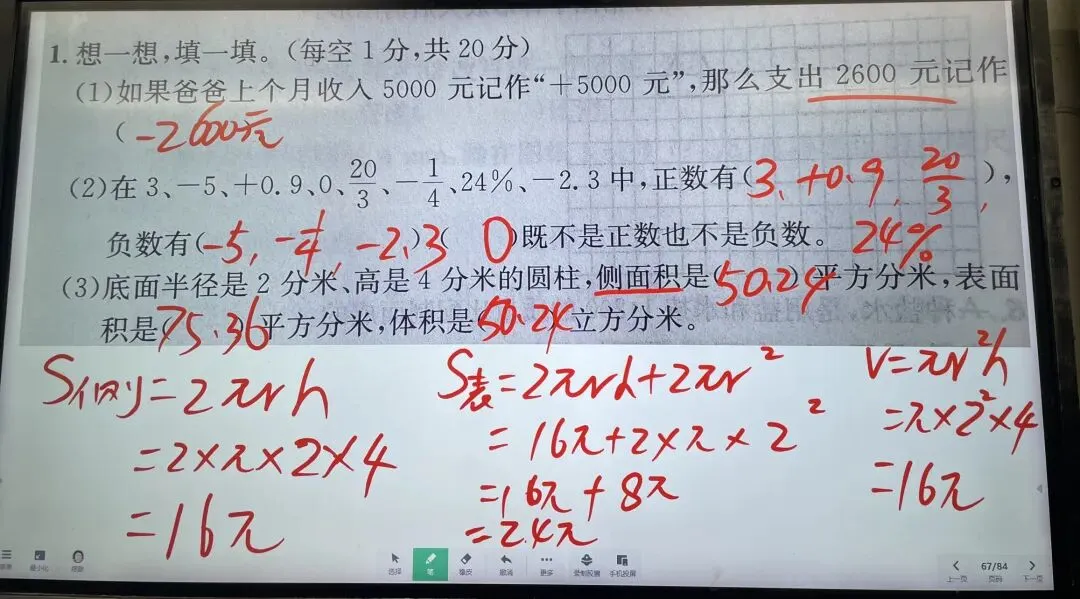 1. 想一想,填一填。(每空 1 分,共 20 分)
(1)如果爸爸上个月收入 5000 元记作“+5000 元”,那么支出 2600 元记作
(-2600元
(2)在 3、-5、+0.9、0、20/3、-1/4、24%、-2.3 中,正数有(3、+0.9、20/3、),
负数有(-5, -1/4, -2.3)( 0 )既不是正数也不是负数。 24%
(3)底面半径是 2 分米、高是 4 分米的圆柱,侧面积是(50.24)平方分米,表面
积是(75.36)平方分米,体积是(50.24)立方分米。
S侧=2πrh
=2×π×2×4
=16π
S表=2πrh+2πr²
=16π+2×π×2²
=16π+8π
=24π
V=πr²h
=π×2²×4
=16π
最小化
选择 笔 橡皮 撤销 更多 手机投屏
67/84
上一页 页码 下一页